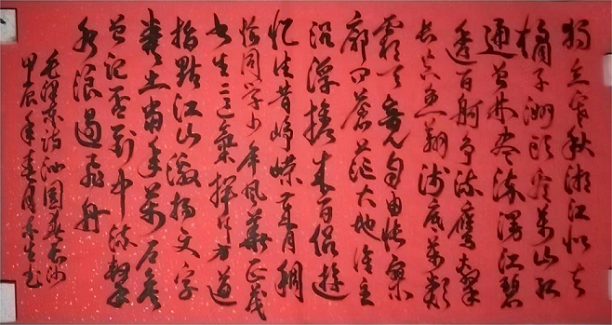 独立寒秋湘江北去
橘子洲頭看萬山紅
遍层林尽染漫江碧
透百舸争流鹰擊
长空鱼翔浅底萬類
霜天竞自由怅寥
廓问蒼茫大地谁主
沉浮携来百侣遊
忆往昔峥嵘岁月稠
恰同学少年风華正茂
书生意氣挥斥方遒
指點江山激扬文字
粪土當年萬户侯
曾记否到中流擊
水浪遏飛舟
毛澤东词沁園春長沙
甲辰年春月